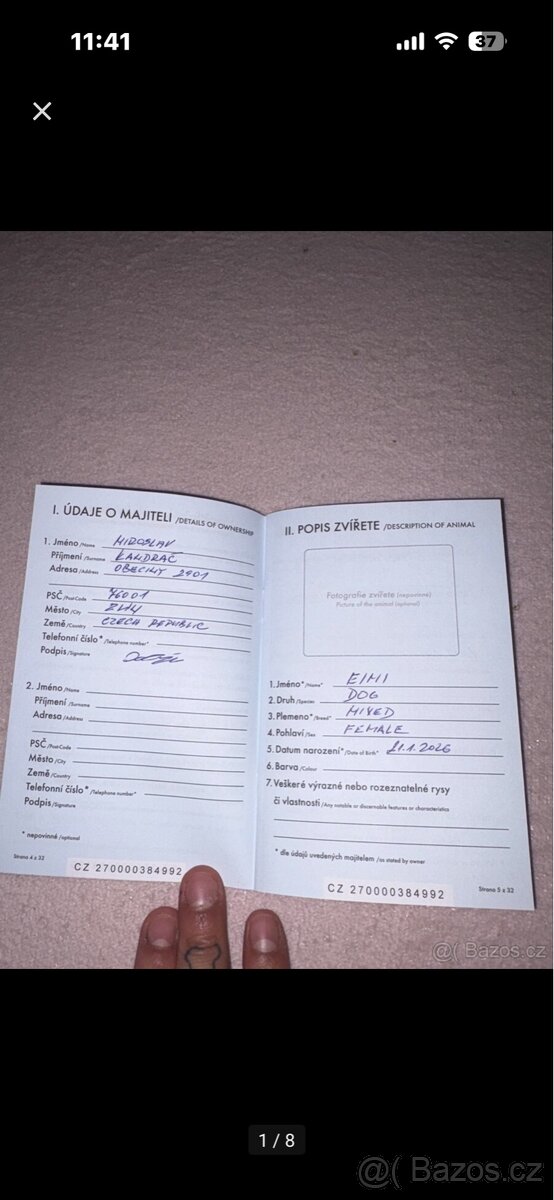 11:41
37
I. ÚDAJE O MAJITELI /DETAILS OF OWNERSHIP
1. Jméno/Name MIROSLAV
Příjmení/Surname KANDRAČ
Adresa/Address OBECINY 2901
PSČ/PostCode 76001
Město/City ZLÍN
Země/Country CZECH REPUBLIC
Telefonní číslo*/Telephone number*
Podpis/Signature
2. Jméno/Name
Příjmení/Surname
Adresa/Address
PSČ/PostCode
Město/City
Země/Country
Telefonní číslo*/Telephone number*
Podpis/Signature
* nepovinné/optional
Strana 4 z 32
CZ 270000384992
II. POPIS ZVÍŘETE /DESCRIPTION OF ANIMAL
Fotografie zvířete (nepovinné)
Picture of the animal (optional)
1. Jméno*/Name* EIMI
2. Druh/Species DOG
3. Plemeno*/Breed* MIXED
4. Pohlaví/Sex FEMALE
5. Datum narození*/Date of Birth* 21.1.2026
6. Barva/Colour
7. Veškeré výrazné nebo rozeznatelné rysy
či vlastnosti/Any notable or discernable features or characteristics
* dle údajů uvedených majitelem /as stated by owner
CZ 270000384992
Strana 5 z 32
@( Bazos.cz
1 / 8
@( Bazos.cz